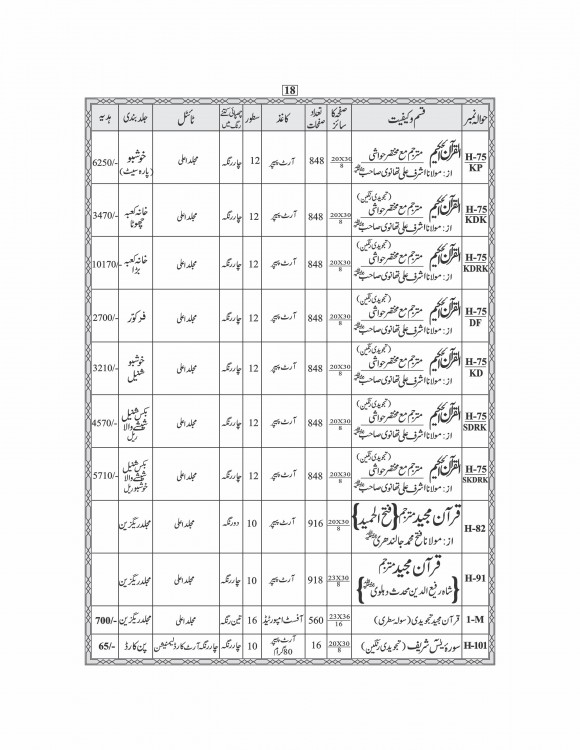 18
حوالہ نمبر قسم و کیفیت صفحہ کا سائز تعداد صفحات کاغذ سطور چھپائی کتنے رنگ میں ٹائٹل جلد بندی ہدیہ
H-75 KP القرآن الحکیم مترجم مع مختصر حواشی 20X30/8 848 آرٹ پیپر 12 چار رنگہ مجلد اعلی خوشبو (پارہ سیٹ) 6250/-
از: مولانا اشرف علی تھانوی صاحب
H-75 KDK القرآن الحکیم (تجویدی رنگین) مترجم مع مختصر حواشی 20X30/8 848 آرٹ پیپر 12 چار رنگہ مجلد اعلی خانہ کعبہ چھوٹا 3470/-
از: مولانا اشرف علی تھانوی صاحب
H-75 KDRK القرآن الحکیم (تجویدی رنگین) مترجم مع مختصر حواشی 20X30/8 848 آرٹ پیپر 12 چار رنگہ مجلد اعلی خانہ کعبہ بڑا 10170/-
از: مولانا اشرف علی تھانوی صاحب
H-75 DF القرآن الحکیم (تجویدی رنگین) مترجم مع مختصر حواشی 20X30/8 848 آرٹ پیپر 12 چار رنگہ مجلد اعلی فر کور 2700/-
از: مولانا اشرف علی تھانوی صاحب
H-75 KD القرآن الحکیم (تجویدی رنگین) مترجم مع مختصر حواشی 20X30/8 848 آرٹ پیپر 12 چار رنگہ مجلد اعلی خوشبو شنیل 3210/-
از: مولانا اشرف علی تھانوی صاحب
H-75 SDRK القرآن الحکیم (تجویدی رنگین) مترجم مع مختصر حواشی 20X30/8 848 آرٹ پیپر 12 چار رنگہ مجلد اعلی بکس شنیل شیشے والا ریل 4570/-
از: مولانا اشرف علی تھانوی صاحب
H-75 SKDRK القرآن الحکیم (تجویدی رنگین) مترجم مع مختصر حواشی 20X30/8 848 آرٹ پیپر 12 چار رنگہ مجلد اعلی بکس شنیل شیشے والا خوشبو ریل 5710/-
از: مولانا اشرف علی تھانوی صاحب
H-82 قرآن مجید مترجم {فتح الحمید} 20X30/8 916 آرٹ پیپر 10 دو رنگہ مجلد اعلی مجلد ریگزین
از: مولانا فتح محمد جالندھری
H-91 قرآن مجید مترجم 23X30/8 918 آرٹ پیپر 10 چار رنگہ مجلد اعلی مجلد ریگزین
{شاہ رفیع الدین محدث دہلوی}
1-M قرآن مجید تجویدی (سولہ سطری) 23X36/16 560 آفسٹ امپورٹیڈ 16 تین رنگہ مجلد اعلی مجلد ریگزین 700/-
H-101 سورۂ یٰسٓ شریف (تجویدی رنگین) 20X30/8 16 آرٹ پیپر 80 گرام 10 چار رنگہ چار رنگہ آرٹ کارڈ لیمنیشن پن کارڈ 65/-